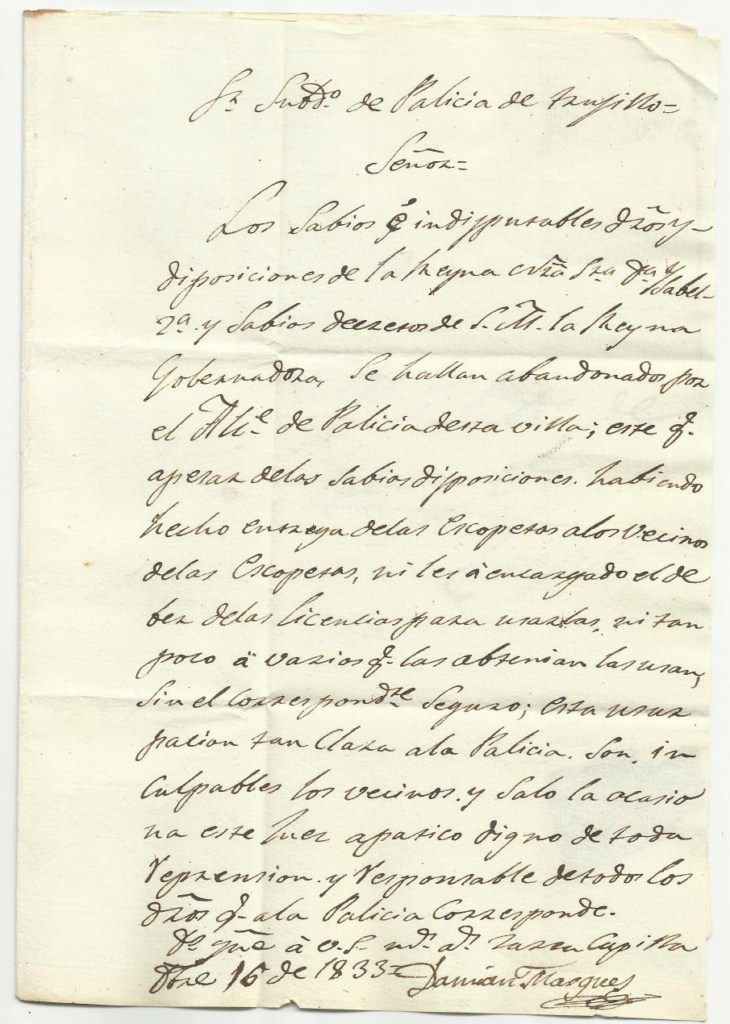 Sr. Subdo. de Policia de truxillo=
Señor=
Los Sabios é indisputables dr̃os y
disposiciones de la Reyna ntr̃a Sra. Da. Ysabel
2a. y Sabios decretos de S. M. la Reyna
Gobernadora, Se hallan abandonados por
el Alce. de Policia desta villa; este q.
apesar delas Sabias disposiciones. habiendo
hecho entrega delas Escopetas alos Vecinos
delas Escopetas, ni les à encargado el de
ber delas licencias para usarlas, ni tan
poco à varios q. las obtenian las usan,
Sin el Correspondte. Seguro; esta usur
pacion tan Clara ala Policia. Son. in
Culpables los vecinos. y Solo la ocasio
na este Juez apatico digno de toda
reprension. y responsable de todos los
dr̃os q. ala Policia Corresponde.
Ds. gue. à v. S. ms. as. Capilla
Dbre 16 de 1833= Damian Marques